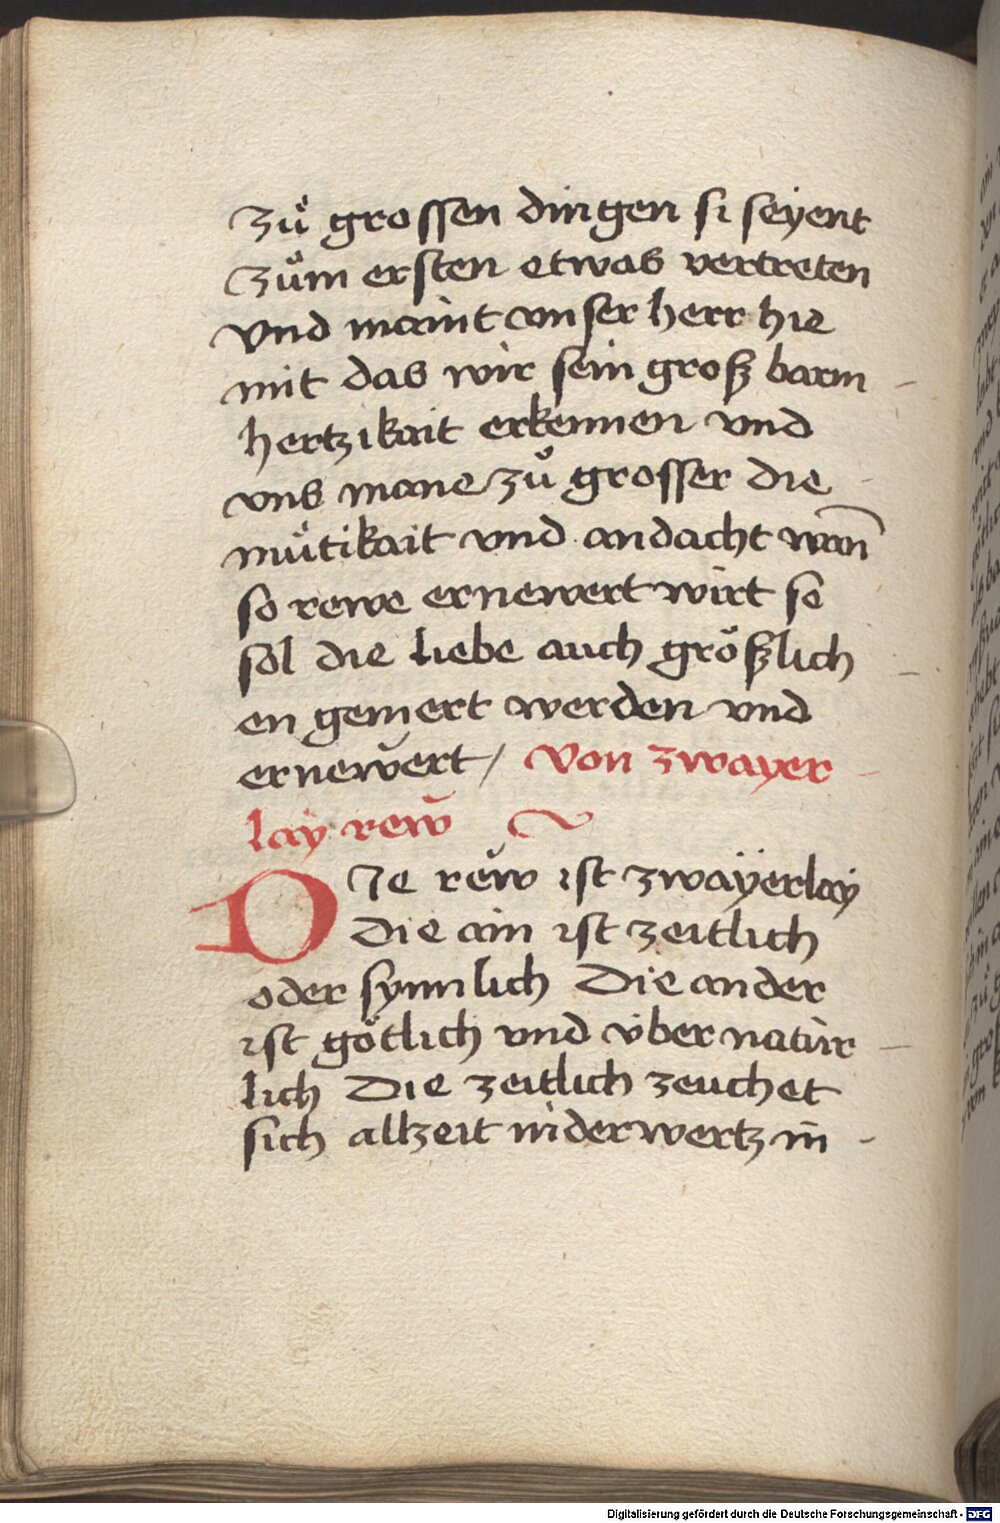 zuͦ grossen dingen si seyent
zuͦm ersten etwas vertreten
vnd maint vnser herr hie
mit das wir sein groß barm -
hertzikait erkennen vnd
vns mane zuͦ grosser die -
muͤtikait vnd andacht wan̄
so rewe ernewert wirt so
sol die liebe auch größlich -
en gemert werden vnd
ernewert / Von zwayer -
lay rew
DIe rew ist zwayerlay
Die ain ist zeitlich
oder synnlich Die ander
ist götlich vnd v̈ber natür -
lich Die zeitlich zeuchet
sich allzeit niderwertz in -
Digitalisierung gefördert durch die Deutsche Forschungsgemeinschaft - DFG